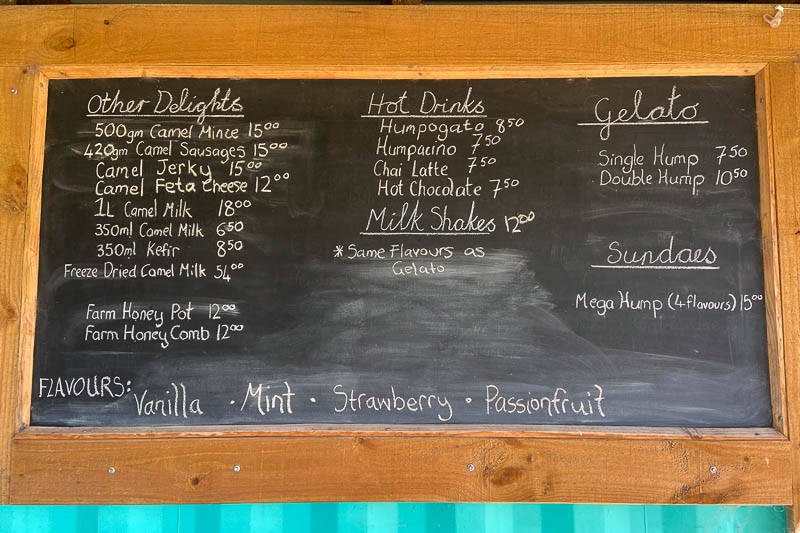 Other Delights
500gm Camel Mince 15⁰⁰
420gm Camel Sausages 15⁰⁰
Camel Jerky 15⁰⁰
Camel Feta Cheese 12⁰⁰
1L Camel Milk 18⁰⁰
350ml Camel Milk 6⁵⁰
350ml Kefir 8⁵⁰
Freeze Dried Camel Milk 54⁰⁰
Farm Honey Pot 12⁰⁰
Farm Honey Comb 12⁰⁰
Hot Drinks
Humpogato 8⁵⁰
Humpacino 7⁵⁰
Chai Latte 7⁵⁰
Hot Chocolate 7⁵⁰
Milk Shakes 12⁰⁰
* Same Flavours as
Gelato
Gelato
Single Hump 7⁵⁰
Double Hump 10⁵⁰
Sundaes
Mega Hump (4 flavours) 15⁰⁰
FLAVOURS: Vanilla · Mint · Strawberry · Passionfruit